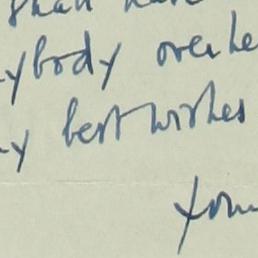 shall have
ybody over he
y best wishes
you